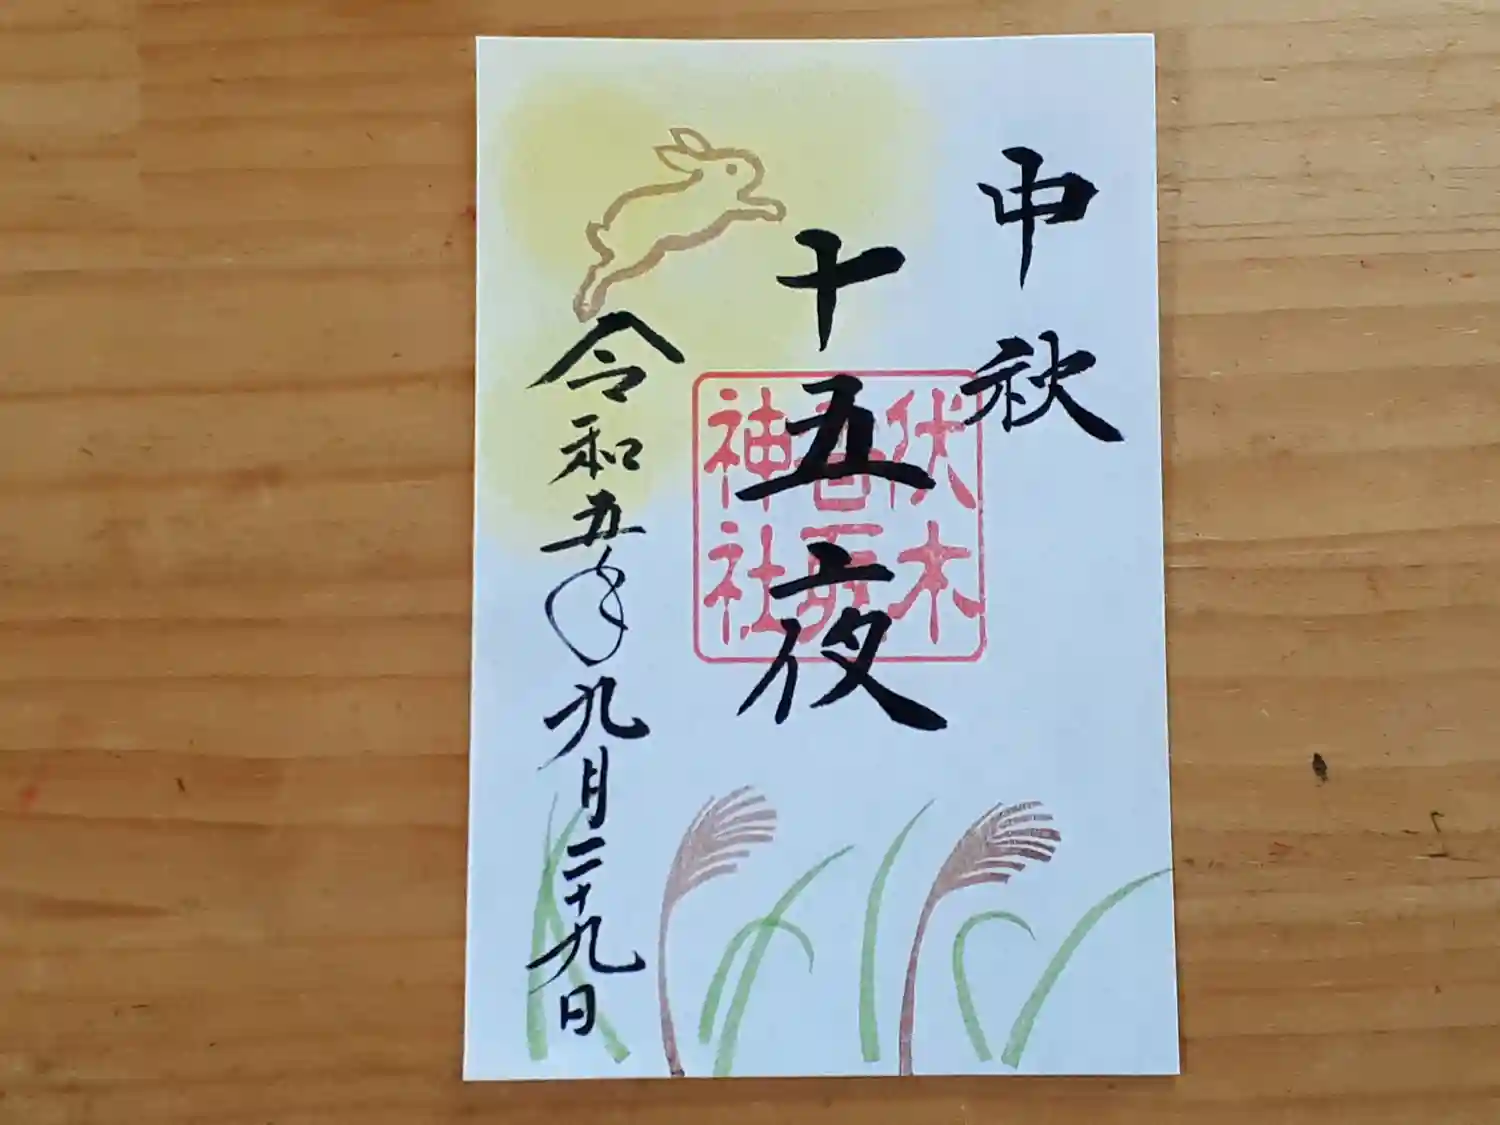 中秋
十五夜
伏木
神社
令和五年九月二十九日